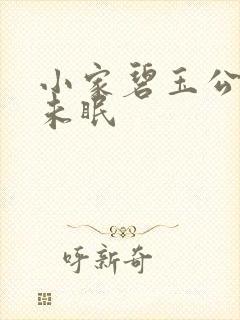 小家碧玉公
未眠
呀新奇